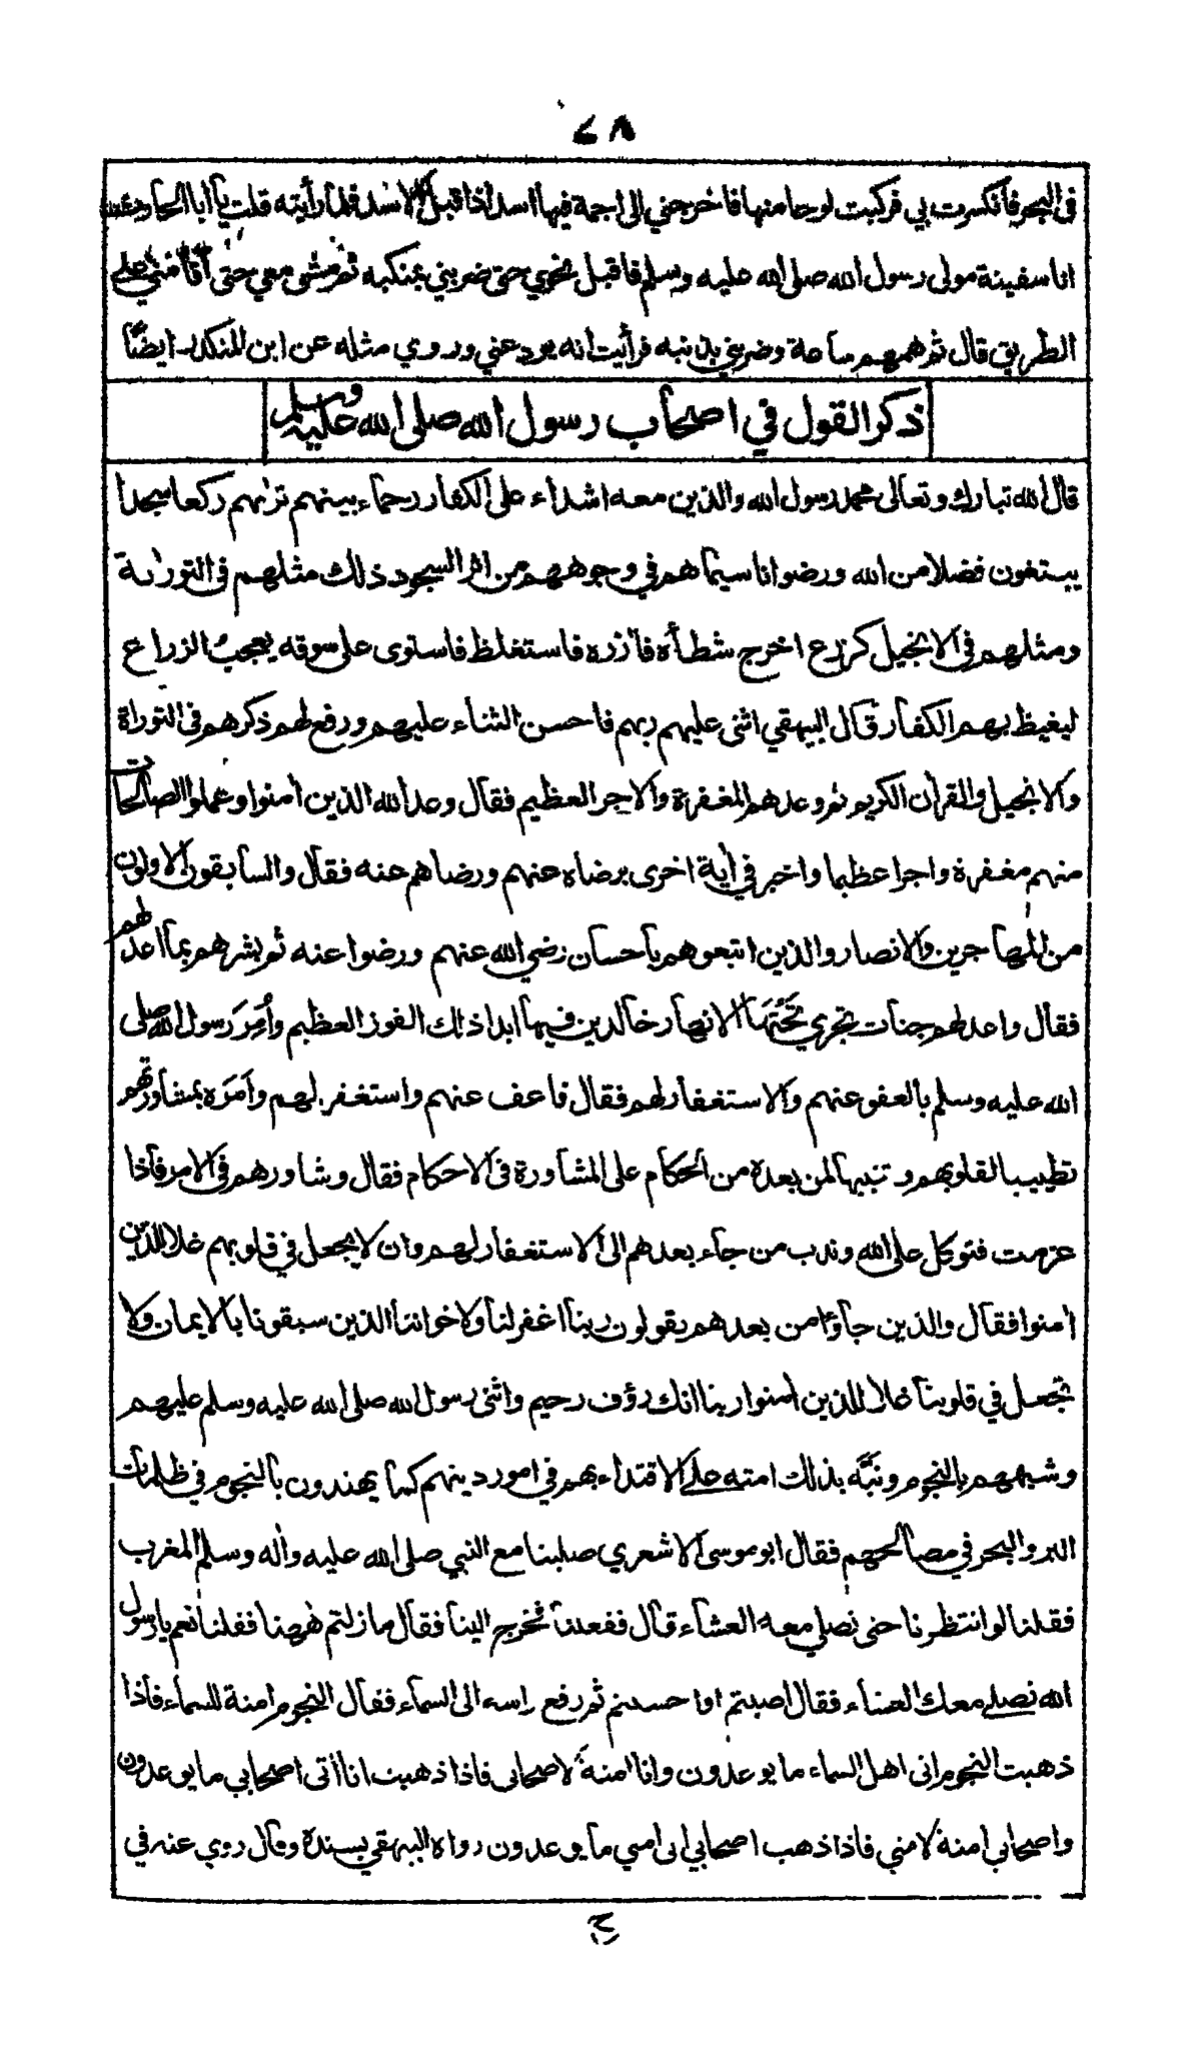 ٧٨
في البحر فانكسرت بي فركبت لوحا منها فاخرجني الى اجمة فيها اسد اذ اقبل الاسد فلما رأيته قلت يا ابا الحارث
انا سفينة مولى رسول الله صلى الله عليه وسلم فاقبل نحوي حتى ضربني بمنكبه ثم مشى معي حتى أقامني على
الطريق قال ثم همهم ساعة وضربني بذنبه فرأيت انه يودعني وروي مثله عن ابن المنكدر ايضًا
ذكر القول في اصحاب رسول الله صلى الله عليه وسلم
قال الله تبارك وتعالى محمد رسول الله والذين معه اشداء على الكفار رحماء بينهم تراهم ركعا سجدا
يبتغون فضلا من الله ورضوانا سيماهم في وجوههم من اثر السجود ذلك مثلهم في التوراة
ومثلهم في الانجيل كزرع اخرج شطأه فآزره فاستغلظ فاستوى على سوقه يعجب الزراع
ليغيظ بهم الكفار قال البيهقي اثنى عليهم ربهم فاحسن الثناء عليهم ورفع لهم ذكرهم في التوراة
والانجيل والقرآن الكريم ثم وعدهم المغفرة والاجر العظيم فقال وعد الله الذين آمنوا وعملوا الصالحات
منهم مغفرة واجرا عظيما واخبر في أية اخرى برضاه عنهم ورضاهم عنه فقال والسابقون الاولون
من المهاجرين والانصار والذين اتبعوهم بأحسان رضي الله عنهم ورضوا عنه ثم بشرهم بما اعد لهم
فقال واعد لهم جنات تجري تَحْتَهَا الانهار خالدين فيها ابدا ذلك الفوز العظيم وأَمَرَ رسول الله صلى
الله عليه وسلم بالعفو عنهم والاستغفار لهم فقال فاعف عنهم واستغفر لهم وأمَرَه بمشاورتهم
تطييبا لقلوبهم وتنبيها لمن بعده من الحكام على المشاورة في الاحكام فقال وشاورهم في الامر فاذا
عزمت فتوكل على الله وندب من جاء بعدهم الى الاستغفار لهم وان لا يجعل في قلوبهم غلا للذين
آمنوا فقال والذين جاؤا من بعدهم يقولون ربنا اغفر لنا ولاخواننا الذين سبقونا بالايمان ولا
تجعل في قلوبنا غلا للذين آمنوا ربنا انك رؤف رحيم واثنى رسول الله صلى الله عليه وسلم عليهم
وشبههم بالنجوم ونبَّه بذلك امته على الاقتداء بهم في امور دينهم كما يهتدون بالنجوم في ظلمات
البر والبحر في مصالحهم فقال ابو موسى الاشعري صلينا مع النبي صلى الله عليه وآله وسلم المغرب
فقلنا لو انتظرنا حتى نصلي معه العشاء قال ففعلنا فخرج الينا فقال ما زلتم هٰهنا فقلنا نعم يا رسول
الله نصلي معك العشاء فقال اصبتم او احسنتم ثم رفع راسه الى السماء فقال النجوم امنة للسماء فاذا
ذهبت النجوم اتى اهل السماء ما يوعدون وانا امنة لاصحابي فاذا ذهبت انا اتى اصحابي ما يوعدون
واصحابي امنة لامتي فاذا ذهب اصحابي اتى امتي ما يوعدون رواه البيهقي بسنده وقال روي عنه في